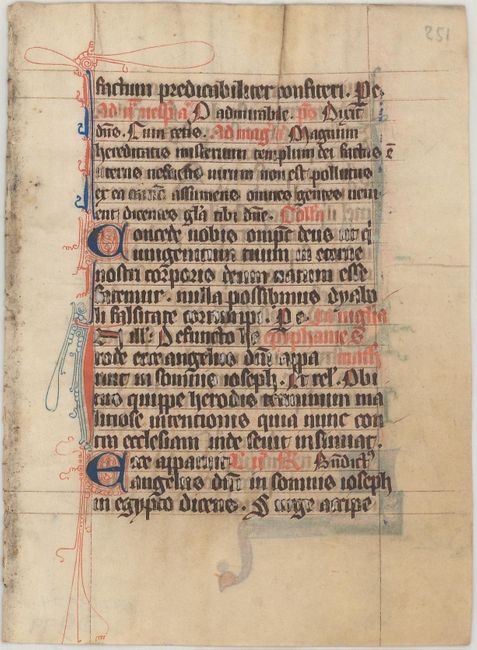 251
factum predicabiliter confiteri. Pe
Ad ii. vesp. a. O admirabile. ps. Dixit
dñs. Cum cetis. Ad mag. a. Magnum
hereditatis misterium templum dei factus ē
uterus nesciens virum non est pollutus
ex ea carnem assumens omnes gentes veni
ent dicentes gl̃a tibi dñe. Coll̃a
Concede nobis omp̃t deus ut q̃
unigenitum tuum in carne
nostri corporis deum natum esse
fatemur. nulla possimus dyabo
li falsitate corrumpi. P e. In vigilia
ill̃. Defuncto epyphanie s̃
rode ecce angelus dñi appa math
ruit in somnis ioseph. Et rel. Obi
tus quippe herodis terminum ma
linose intencionis qua nunc con
tra ecclesiam inde seuit insinuat.
Ecce apparuit Bñdict̃
angelus dñi in somnis ioseph
in egypto dicens. Surge accipe